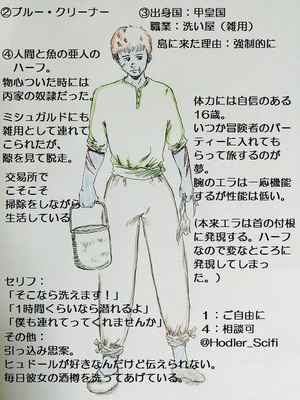 ②ブルー・クリーナー
③出身国：甲皇国
職業：洗い屋（雑用）
島に来た理由：強制的に
④人間と魚の亜人の
ハーフ。
物心ついた時には
丙家の奴隷だった。
ミシュガルドにも
雑用として連れて
こられたが、
隙を見て脱走。
交易所で
こそこそ
掃除をしながら
生活している
体力には自信のある
16歳。
いつか冒険者のパー
ティーに入れても
らって旅するのが
夢。
腕のエラは一応機能
するが性能は低い。
(本来エラは首の付根
に発現する。ハーフ
なので変なところに
発現してしまっ
た。)
セリフ：
「そこなら洗えます！」
「1時間くらいなら潜れるよ」
「僕も連れてってくれませんか」
その他：
引っ込み思案。
ヒュドールが好きなんだけど伝えられない。
毎日彼女の酒樽を洗ってあげている。
1：ご自由に
4：相談可
@Hodler_Scifi